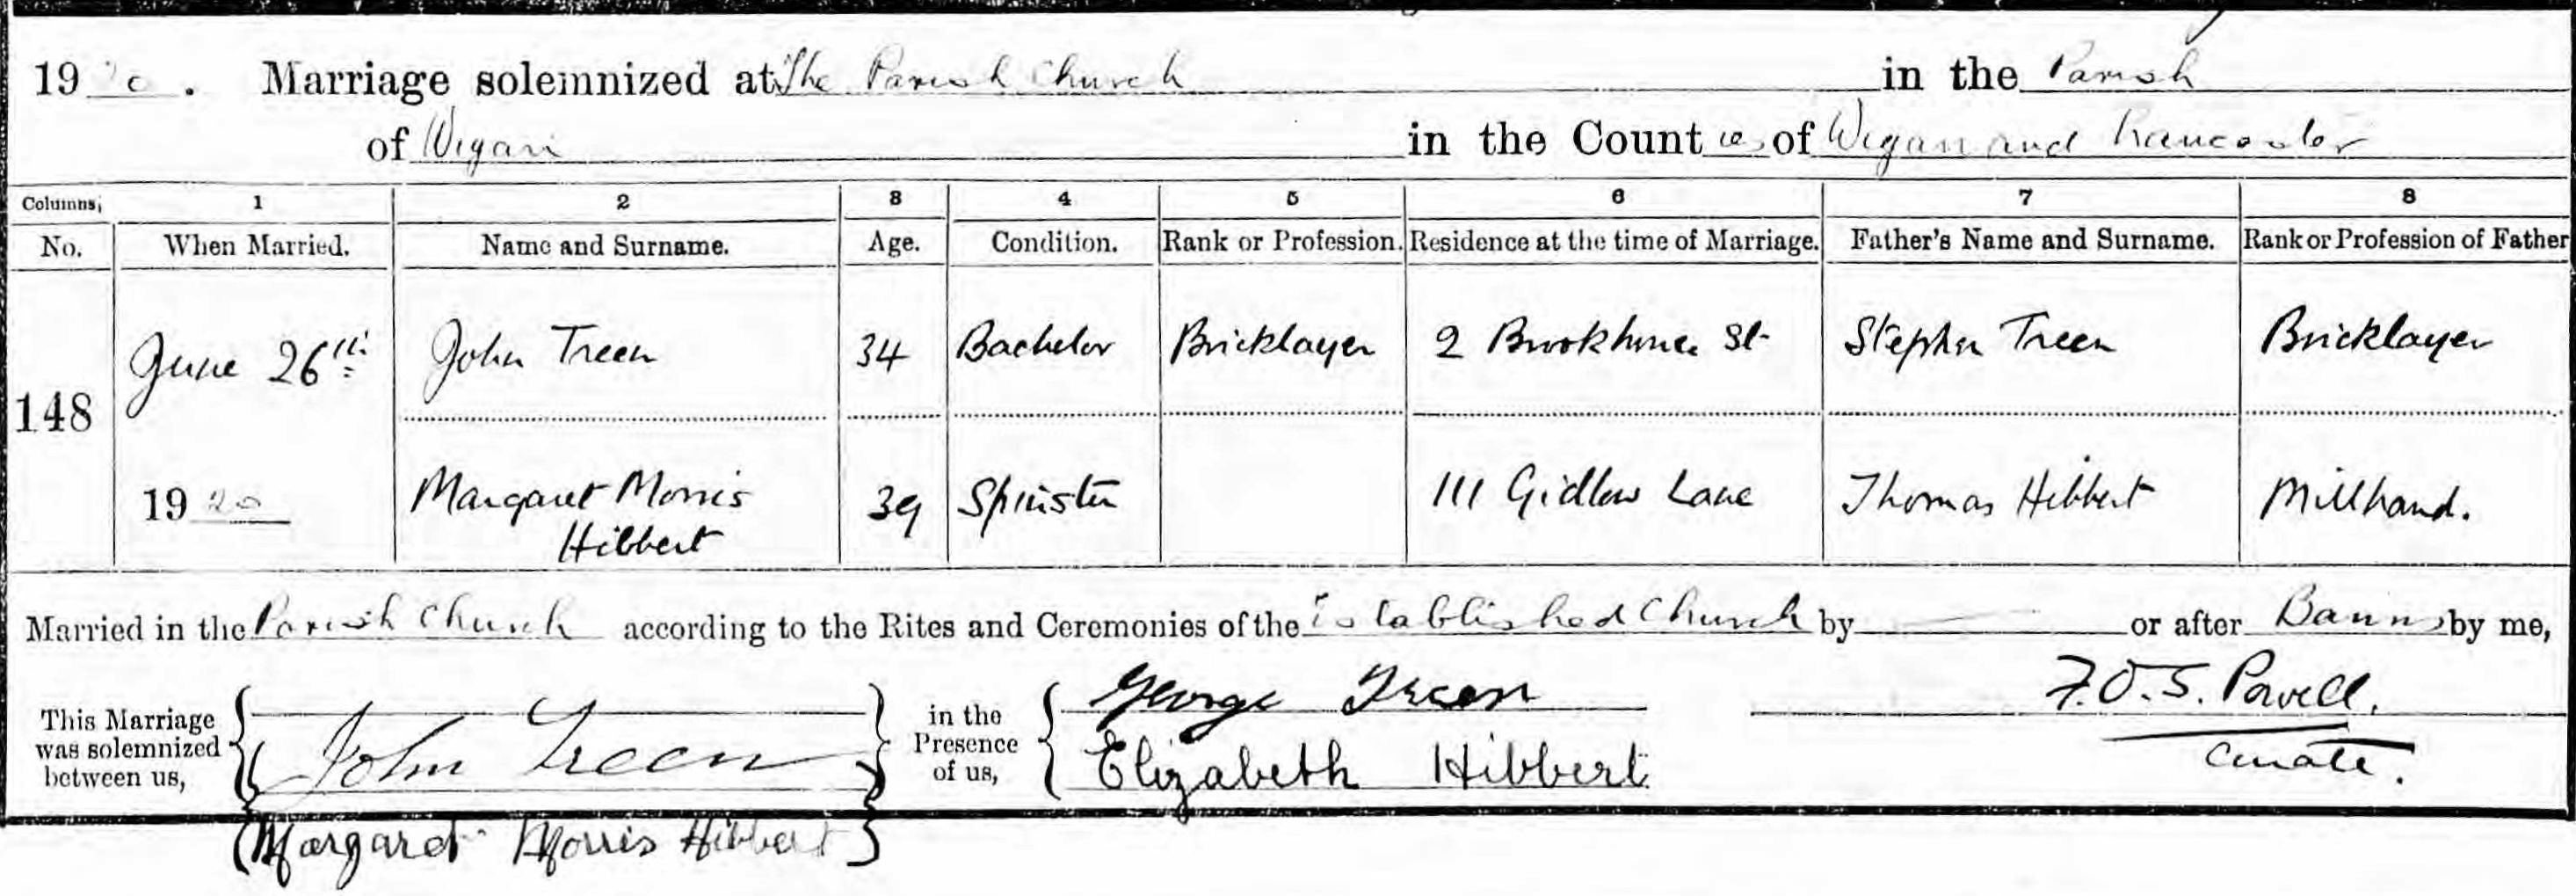 1920. Marriage solemnized at The Parish Church in the Parish
of Wigan in the Counties of Wigan and Lancaster
Columns, 1 2 3 4 5 6 7 8
No. When Married. Name and Surname. Age. Condition. Rank or Profession. Residence at the time of Marriage. Father's Name and Surname. Rank or Profession of Father
148 June 26th John Treen 34 Bachelor Bricklayer 2 Brookhouse St Stephen Treen Bricklayer
1920 Margaret Morris Hibbert 39 Spinster 111 Gidlow Lane Thomas Hibbert Millhand.
Married in the Parish Church according to the Rites and Ceremonies of the Established Church by or after Banns by me,
This Marriage was solemnized between us, John Treen in the Presence of us, George Treen F.O.S. Powell.
Elizabeth Hibbert Curate.
Margaret Morris Hibbert